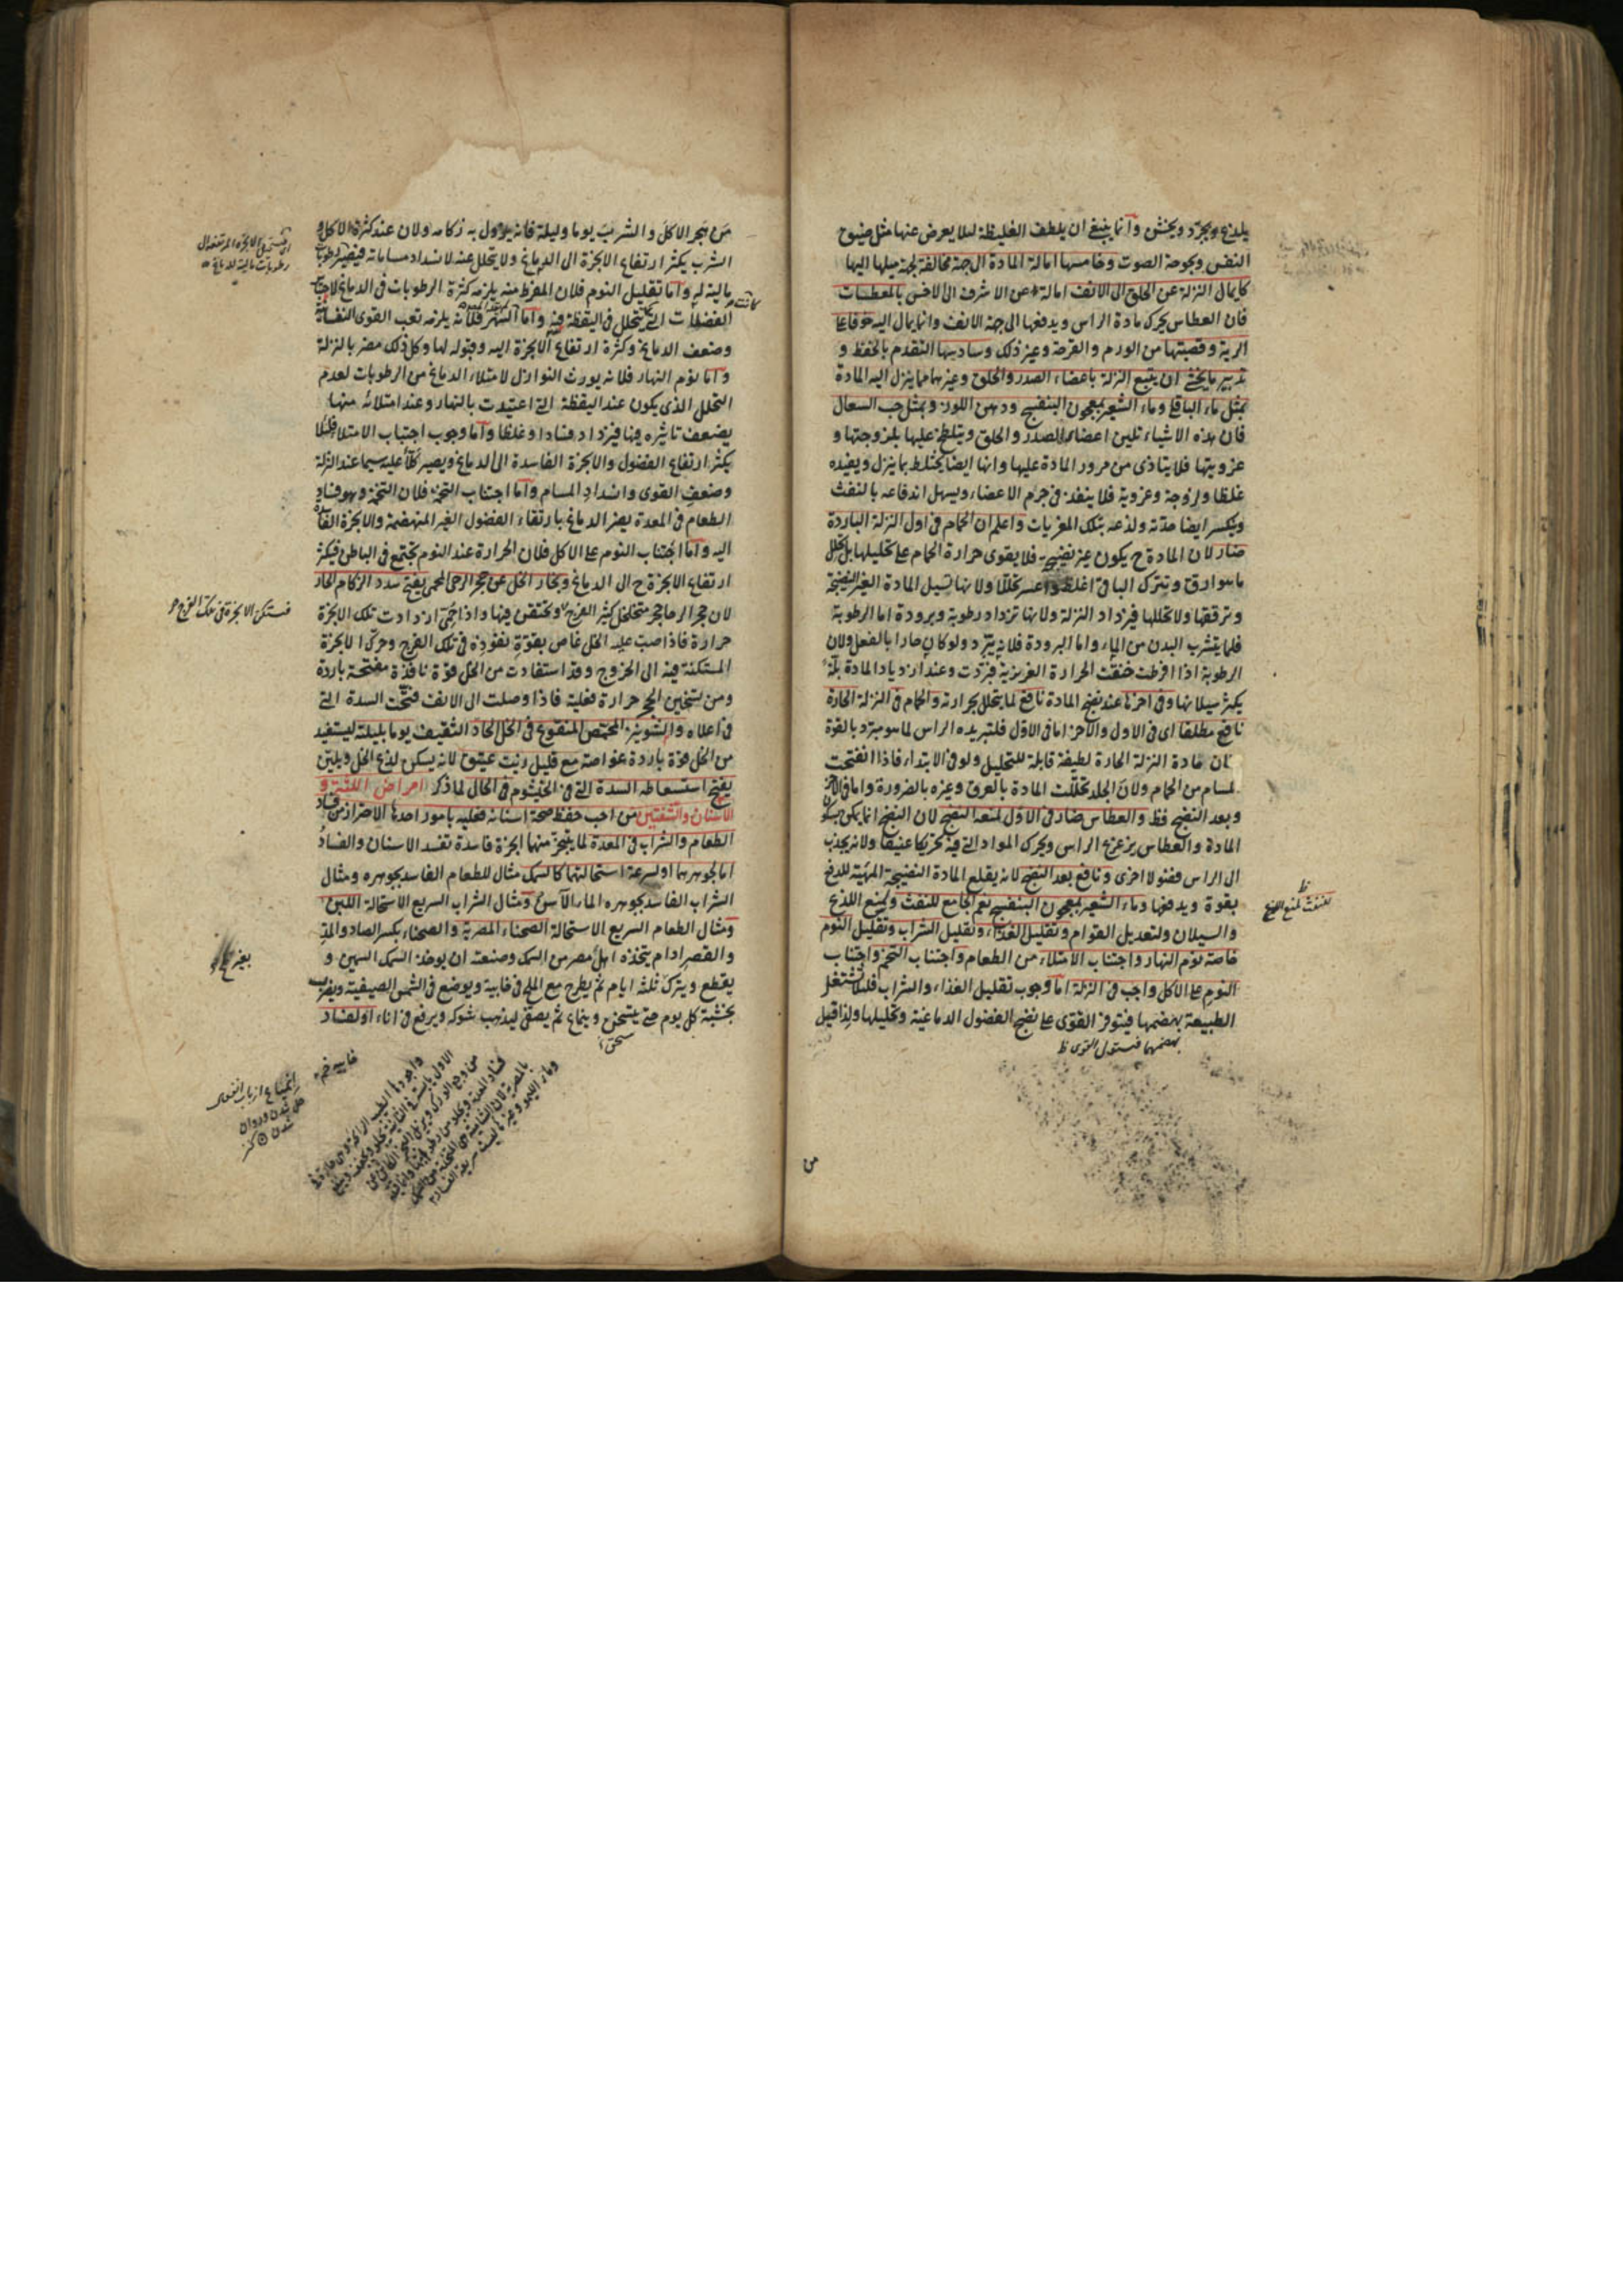 يلدغ ويجرد ويخشن وانما ينبغى ان يلطف الغليظة لئلا يعرض عنها مثل ضيق
النفس وبحوحة الصوت وخامسها امالة المادة الى جهة مخالفة لجهة ميلها اليها
كايمال النزلة عن الحلق الى الانف امالة عن الاشرف الى الاخس بالمعطسات
فان العطاس يحرك مادة الراس ويدفعها الى جهة الانف وانما يمال اليه خوفا على
الرية وقصبتها من الورم والقرحة وغير ذلك وسادسها التقدم بالحفظ و
تدبير ما يخشى ان يتبع النزلة باعضاء الصدر والحلق وغيرهما مما ينزل اليه المادة
بمثل ماء الباقلى وماء الشعير بمعجون البنفسج ودهن اللوز وبمثل حب السعال
فان هذه الاشياء تلين اعضاء الصدر والحلق ويتلطخ عليها بلزوجتها و
غرويتها فلا يتاذى من مرور المادة عليها وانها ايضا يختلط بما ينزل ويفيده
غلظا ولزوجة وغروية فلا ينفذ فى جرم الاعضاء ويسهل اندفاعه بالنفث
ويكسر ايضا حدته ولذعه بتلك المغريات واعلم ان الحمام فى اول النزلة الباردة
ضار لان المادة ح يكون غير نضيج فلا يقوى حرارة الحمام على تحليلها بل يحلل
ما هو ارق ويترك الباقى اغلظ واعسر تحللا ولانها تسيل المادة الغير النضيجة
وترققها ولا تحللها فيزداد النزلة ولانها تزداد رطوبة وبرودة اما الرطوبة
فلما يتشرب البدن من الماء واما البرودة فلانه يبرد ولو كان حارا بالفعل ولان
الرطوبة اذا افرطت خنقت الحرارة الغريزية فبردت وعند ازدياد المادة بلة
يكثر سيلانها وفى اخرها عند نضج المادة نافع لما يتحلل بحرارته والحمام فى النزلة الحارة
نافع مطلقا اى فى الاول والآخر اما فى الاول فلتبريده الراس لما هو مبرد بالقوة
ان مادة النزلة الحارة لطيفة قابلة للتحليل ولو فى الابتداء فاذا انفتحت
لمسام من الحمام ولان الجلد تحللت المادة بالعرق وغيره بالضرورة واما فى الآخر
وبعد النضج فظ والعطاس ضار فى الاول لمنعه النضج لان النضج انما يكن بسكون
المادة والعطاس يزعزع الراس ويحرك المواد التى فيه تحريكا عنيفا ولانه يجذب
الى الراس فضولا اخرى ونافع بعد النضج لانه يقلع المادة النضيجة المهيئة للدفع
بقوة ويدفعها وماء الشعير بمعجون البنفسج نعم الجامع للنفث ولمنع اللذع
والسيلان ولتعديل القوام وتقليل الغذاء وتقليل الشراب وتقليل النوم
خاصة نوم النهار واجتناب الامتلاء من الطعام واجتناب التخم واجتناب
النوم على الاكل واجب فى النزلة اما وجوب تقليل الغذاء والشراب فلئلا تشتغل
الطبيعة بهضمها فيتوفر القوى على نضج الفضول الدماغية وتحليلها ولذا قيل
من هجر الاكل والشرب يوما وليلة فانه يزول به زكامه ولان عند كثرة الاكل و
الشرب يكثر ارتفاع الابخرة الى الدماغ ولا يتحلل عنه لانسداد مساماته فيصير رطوبات
مالية له واما تقليل النوم فلان المفرط منه يلزمه كثرة الرطوبات فى الدماغ لاجتماع
الفضلات التى تتحلل فى اليقظة فيه واما السهر فلانه يلزمه تعب القوى النفسانية
وضعف الدماغ وكثرة ارتفاع الابخرة اليه وقبوله لها وكل ذلك مضر بالنزلة
واما نوم النهار فلانه يورث النوازل لامتلاء الدماغ من الرطوبات لعدم
التحلل الذى يكون عند اليقظة التى اعتيدت بالنهار وعند امتلائه منها
يضعف تاثيره فيها فيزداد فسادا وغلظا واما وجوب اجتناب الامتلاء فلئلا
يكثر ارتفاع الفضول والابخرة الفاسدة الى الدماغ ويصير كلا عليه سيما عند النزلة
وضعف القوى وانسداد المسام واما اجتناب التخم فلان التخمة وهو فساد
الطعام فى المعدة يضر الدماغ بارتقاء الفضول الغير المنهضمة والابخرة الفاسدة
اليه واما اجتناب النوم على الاكل فلان الحرارة عند النوم تجتمع فى الباطن فيكثر
ارتفاع الابخرة ح الى الدماغ وبخار الخل عن حجر الرحى المحمى يفتح سدد الزكام الحار
لان حجر الرحا حجر متخلخل كثير الفرج وتحتقن فيها واذا حمى ازدادت تلك الابخرة
حرارة فاذا صب عليه الخل غاص بقوة نفوذه فى تلك الفرج وحرك الابخرة
المستكنة فيه الى الخروج وقد استفادت من الخل قوة نافذة مفتحة باردة
ومن تسخين الحجر حرارة فعلية فاذا وصلت الى الانف فتحت السدة التى
فى اعلاه والشونيز المحمص المنقوع فى الخل الحاد الثقيف يوما بليلته ليستفيد
من الخل قوة باردة غواصة مع قليل زيت عتيق لانه يسكن لذع الخل ويلين
يفتح استسعاطه السدة التى فى الخيشوم فى الحال لما ذكر امراض اللثة و
الاسنان والشفتين من احب حفظ صحة اسنانه فعليه بامور احدها الاحتراز من فساد
الطعام والشراب فى المعدة لما يتبخر منها ابخرة فاسدة تفسد الاسنان والفساد
اما لجوهرهما او لسرعة استحالتهما كالسمك مثال للطعام الفاسد بجوهره ومثال
الشراب الفاسد بجوهره الماء الآسن ومثال الشراب السريع الاستحالة اللبن
ومثال الطعام السريع الاستحالة الصحناء المصرية والصحناء بكسر الصاد والمد
والقصر ادام يتخذه اهل مصر من السمك وصنعته ان يوخذ السمك السمين و
يقطع ويترك ثلثة ايام ثم يطرح مع الملح فى خابية ويوضع فى الشمس الصيفية ويضرب
بخشبة كل يوم حتى يسخن وينماع ثم يصفى ليذهب شوكه ويرفع فى اناء او لفساد
فستكن الابخرة فى تلك الفرج